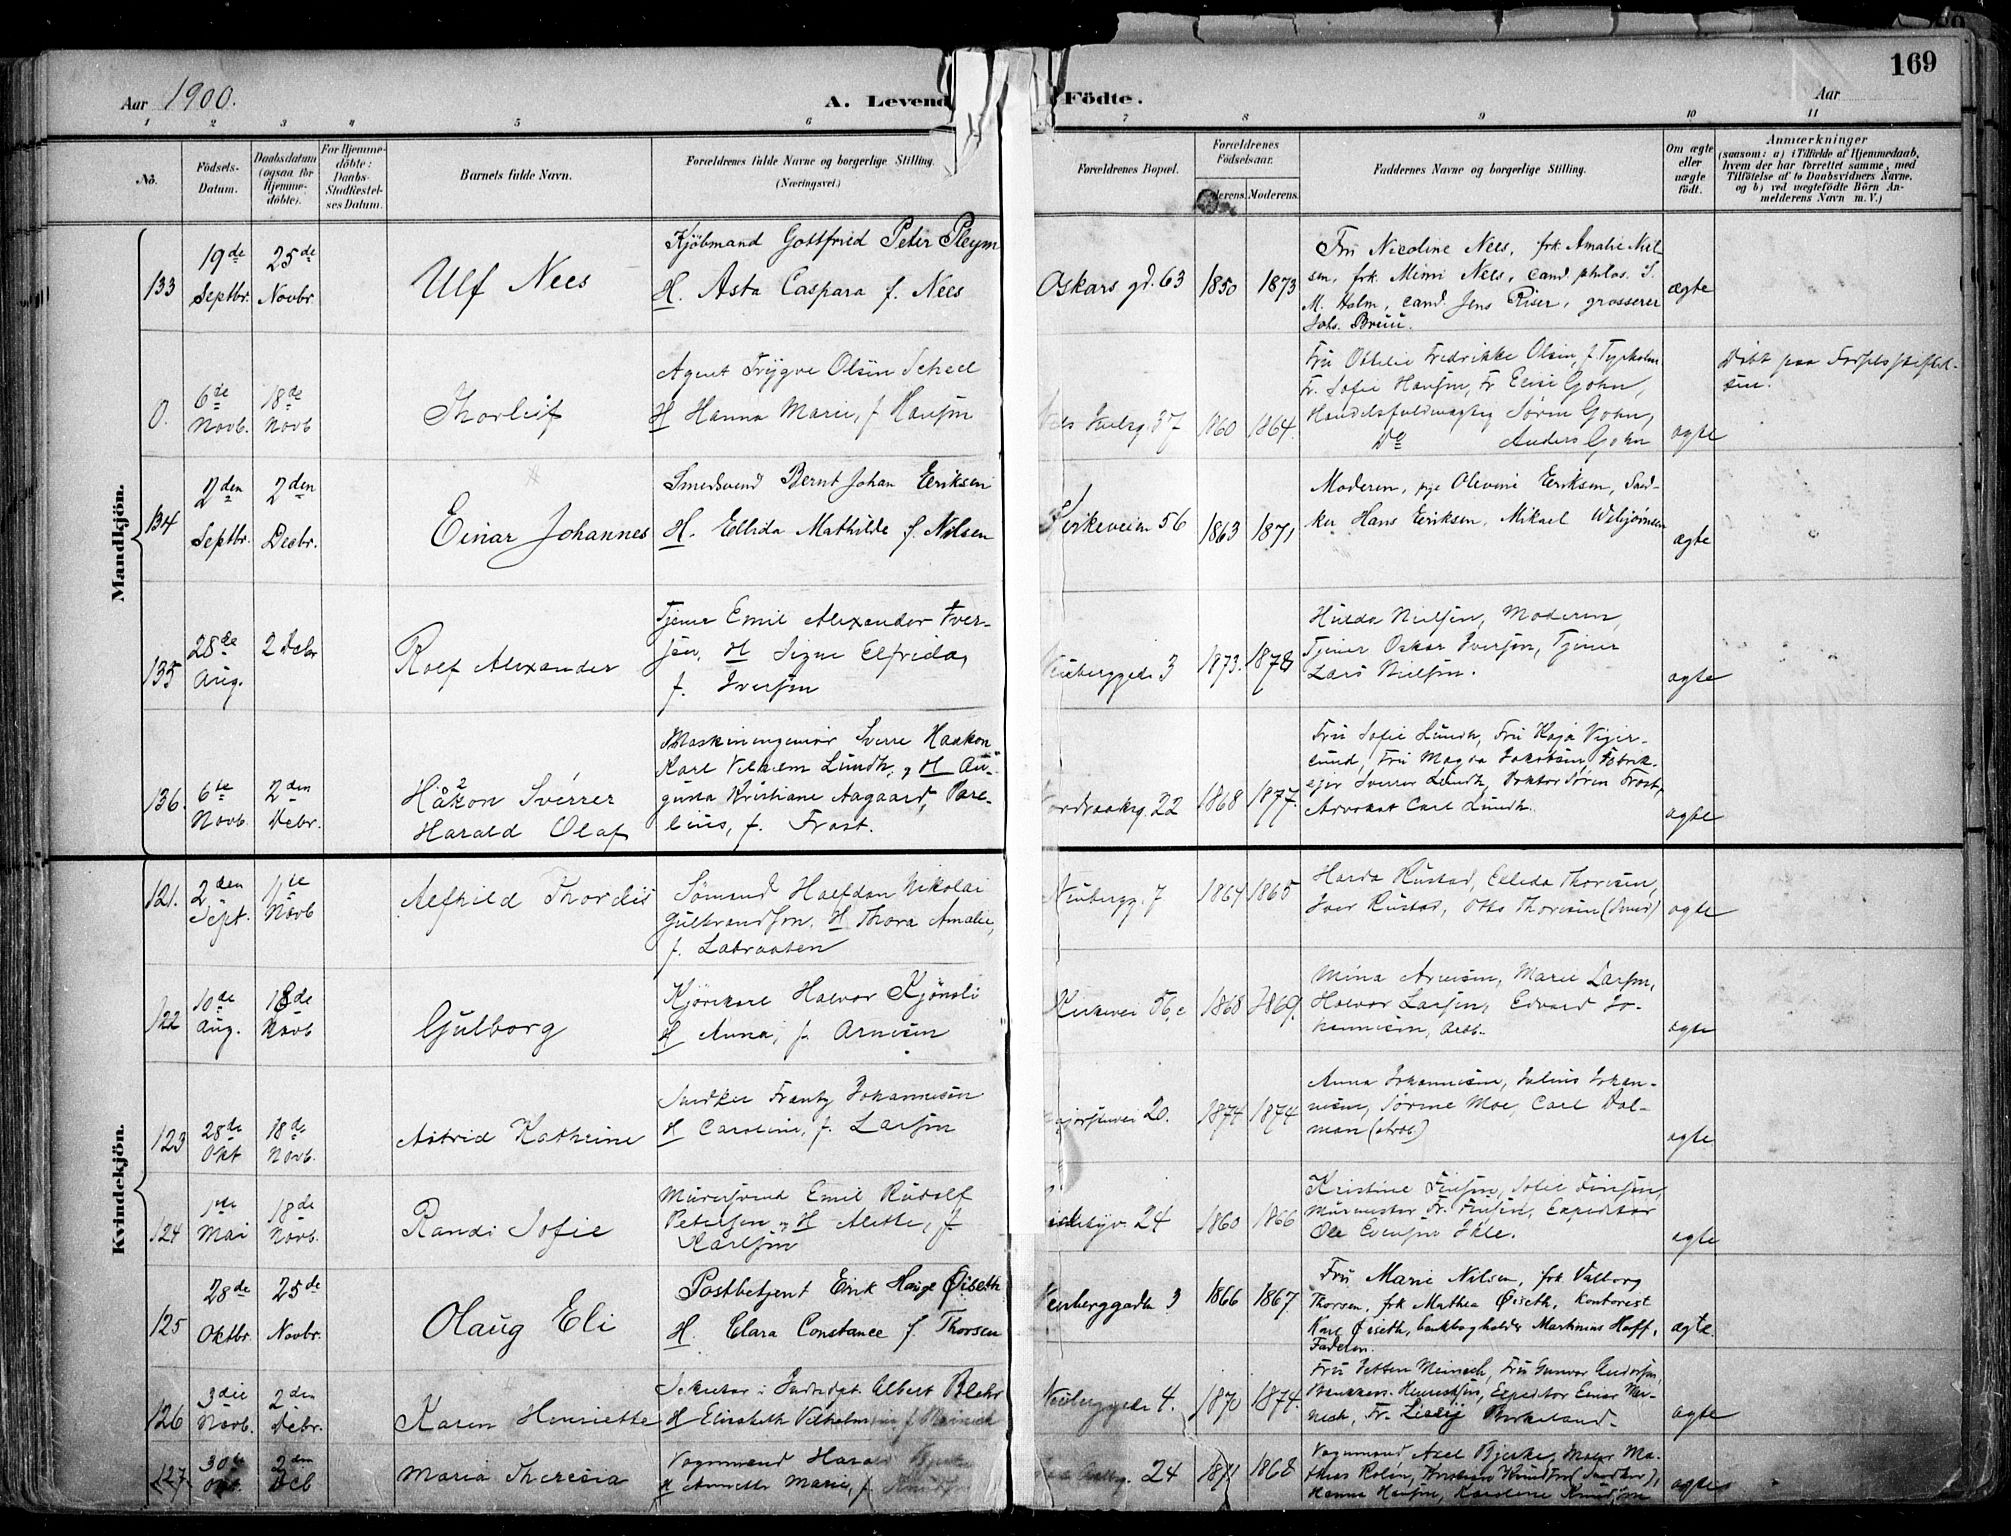 169
Aar 1900.
A. Levend Födte.
Aar
1 2 3 4 5 6 7 8 9 10 11
No.
Födsels-Datum.
Daabsdatum (ogsaa for Hjemme-döbte).
For Hjemme-döbte: Daabs-Stadfæstel-ses Datum.
Barnets fulde Navn.
Forældrenes fulde Navne og borgerlige Stilling. (Næringsvei.)
Forældrenes Bopæl.
Forældrenes Födselsaar.
Moderens.
Faddernes Navne og borgerlige Stilling.
Om ægte eller uægte födt.
Anmærkninger
(saasom: a) i Tilfælde af Hjemmedaab,
hvem der har forrettet samme, med
Tilföielse af to Daabsvidners Navne,
og b) ved uægtefödte Börn An-
melderens Navn m. V.)
Mandkjön.
133
19de Septbr.
25de Novbr.
Ulf Nees
Kjöbmand Gottfried Peter Pleym
H. Asta Caspara f. Nees
Oskars gd. 63
1850
1873
Fru Nicoline Nees, frk Amalie Niel
sen, frk. Mimi Nees, cand. philos. S.
M. Holm, cand. Jens Riser, grosserer
Johs. Bruu.
ægte
0.
6te Novb.
18de Novb
Thorleif
Agent Trygve Olsen Scheel
H Hanna Marie, f. Hansen
Juelsg. 87
1860
1864.
Fru Ottilie Fredrikke Olsen, f. Tyrholm
Fr. Sofie Hansen, Fr Elise Gohn,
Handelsfuldmægtig Sören Gohn,
Do Anders Gohn
ægte
Döbt paa Fødselsstiftel-
sen.
134
2den Septbr.
2den Decbr.
Einar Johannes
Smedsvend Bernt Johan Eriksen
H. Ellida Mathilde f. Nilsen
Kirkeveien 56
1863
1871
Moderen, pige Olevine Eriksen, Snedker
Hans Eriksen, Mikael
ægte
135
28de Aug.
2 Debr
Rolf Alexander
Tjener Emil Alexander Iver-
sen, H Signe Elfrida,
f. Iversen
Neuberggdn 3
1873.
1878
Hulda Nielsen, Moderen,
Tjener Oskar Iversen, Tjener
Lars Nielsen.
ægte
136.
6te Novb.
2den Debr.
Håkon Sverrer
Harald Olaf
Maskiningeniör Sverre Haakon
Karl Vilhelm Lundh, og H Au-
gusta Kristiane Aagaard, Pare-
lius, f. Frost.
Nordraaksg. 22
1868
1877.
Fru Sofie Lundh, Fru Kaja Viger-
lund, Fru Magda Jakobsen, Fabrik-
ejer Sverre Lundh, Doktor Sören Frost,
Advokat Carl Lundh.
ægte
Kvindekjön.
121.
2den Sept.
11te Novb
Alfhild Thordis
Sömand Halfdan Nikolai
Gulbrandsen, H Thora Amalie,
f. Labraaten
Neubergg. 7
1864
1865
Harda Rustad, Ellida Thoresen,
Iver Rustad, Otto Thoresen (Smed)
ægte
122
10de Aug.
18de Novb
Gulborg
Kjörekarl Halvor Kjönsli
H Anna, f. Arnesen
Kirkevei 56,c
1868
1869.
Mina Arnesen, Marie Larsen,
Halvor Larsen, Edvard Jo-
hannesen, Arbb.
ægte
123
28de Okt
18de Novb.
Astrid Kathrine
Snedker Frantz Johannesen
H Caroline, f. Larsen
20.
1874
1874
Anna Johannesen, Julius Johan-
nesen, Sörine Moe, Carl Dal-
man (Arb)
ægte
124
1ste Mai
18de Novb.
Randi Sofie
Murersvend Emil Rudolf
Petersen og H Alette, f.
Karlsen
24
1860
1866
Kristine Finsen, Sofie Finsen,
Murmester Fr. Finsen, Expeditör
Ole Evensen Ihle.
ægte
125
28de Oktbr.
25de Novbr.
Olaug Eli
Postbetjent Erik Hauge Öiseth
H. Clara Constance f. Thorsen
Neuberggadn 3
1866
1867
Fru Marie Nilsen, frk. Valborg
Thorsen, frk Mathea Öiseth, kontorist
Karl Öiseth, bankbogholder Martinius Hoff,
Faderen.
ægte.
126
3die Novb.
2den Debr.
Karen Henriette
Sekretær i Indredpt. Albert Blehr
H Elisabeth Vilhelmine f. Meinich
Neuberggdn 4.
1870
1874.
Fru Jetten Meinich, Fru Gunvor Andersen,
Henriksen, Expeditör Einar Mei-
nich, Fr. Lilly Birkeland.
ægte
127.
30te Okt.
2den Deb
Maria Theresia
Vognmand Harald Bjerke
H Annette Marie, f. Knudsen
24
1871
1868
Vognmand Axel Bjerke, Maler Ma-
thias Rolén, Knudsen (Snedker),
Hanna Hansen, Karoline Knudsen
ægte